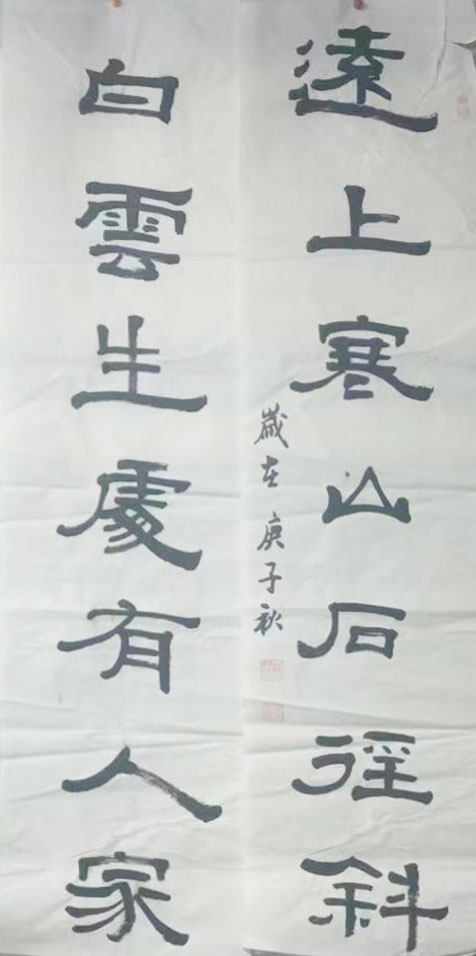 遠上寒山石徑斜
歲在庚子秋
白雲生處有人家